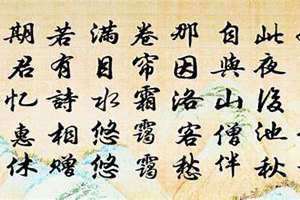 此夜後池秋
自與山僧伴
那因洛客愁
卷帘霜靄靄
滿目水悠悠
若有詩相贈
期君忆惠休